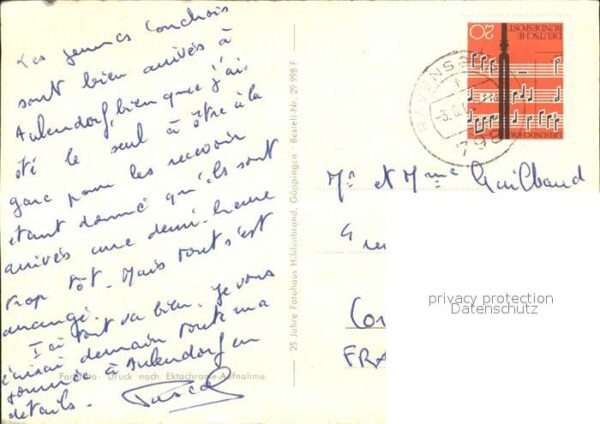 Les jeunes Conchois
sont bien arrivés à
Aulendorf, bien que j'ai
été le seul à être à la
gare pour les recevoir
étant donné qu'ils sont
arrivés une demi-heure
trop tôt. Mais tout s'est
arrangé.
Ici tout va bien. Je vous
écrirai demain toute ma
journée à Aulendorf en
détails. Pascal
Druck nach Ektachrome-Aufnahme
25 Jahre Fotohaus Hildenbrand, Göppingen - Bestell-Nr. 29 998 F
DEUTSCHE
BUNDESPOST
20
RAVENSB
798
Mr et Mme Guilbaud
FRA
privacy protection
Datenschutz